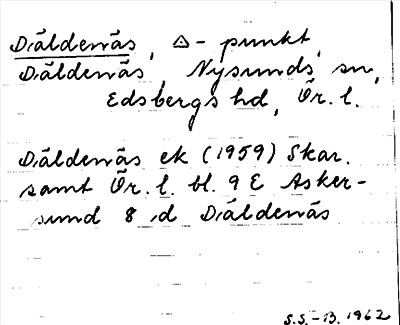 Däldenäs, △-punkt,
Däldenäs, Nysunds sn,
Edsbergs hd, Ör. l.
Däldenäs ek (1959) Skar.
samt Ör. l. bl. 9 E Asker-
sund 8 d Däldenäs
S.S.-B. 1962